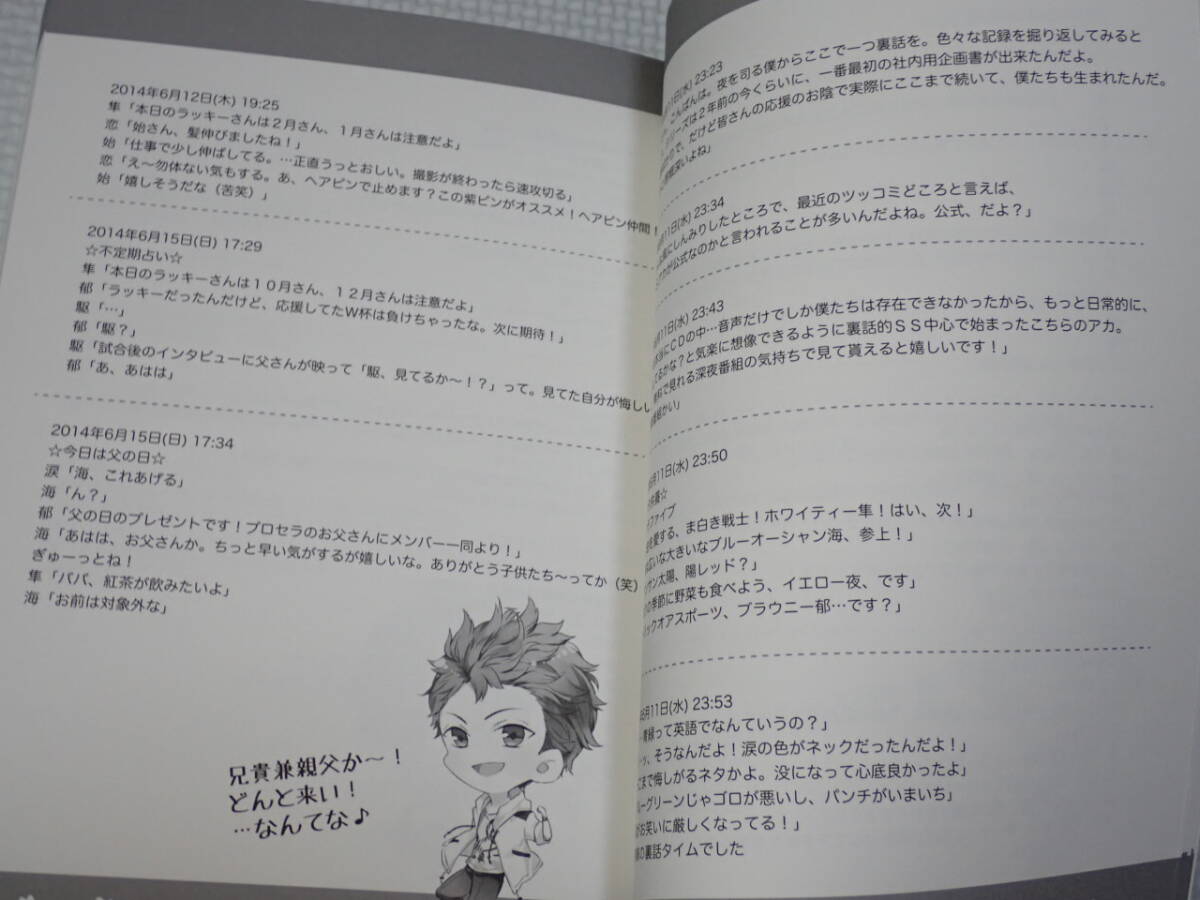 2014年6月12日(木) 19:25
隼「本日のラッキーさんは２月さん、１月さんは注意だよ」
恋「始さん、髪伸びましたね！」
始「仕事で少し伸ばしてる。…正直うっとおしい。撮影が終わったら速攻切る」
恋「え〜勿体ない気もする。あ、ヘアピンで止めます？この紫ピンがオススメ！ヘアピン仲間！
始「嬉しそうだな（苦笑）」
2014年6月15日(日) 17:29
☆不定期占い☆
隼「本日のラッキーさんは１０月さん、１２月さんは注意だよ」
郁「ラッキーだったんだけど、応援してたＷ杯は負けちゃったな。次に期待！」
駆「…」
郁「駆？」
駆「試合後のインタビューに父さんが映って「駆、見てるか〜！？」って。見てた自分が悔しい
郁「あ、あはは」
2014年6月15日(日) 17:34
☆今日は父の日☆
涙「海、これあげる」
海「ん？」
郁「父の日のプレゼントです！プロセラのお父さんにメンバー一同より！」
海「あはは、お父さんか。ちっと早い気がするが嬉しいな。ありがとう子供たち〜ってか（笑）
ぎゅーっとね！
隼「パパ、紅茶が飲みたいよ」
海「お前は対象外な」
兄貴兼親父か〜！
どんと来い！
…なんてな♪
1日(水) 23:23
こんばんは。夜を司る僕からここで一つ裏話を。色々な記録を掘り返してみると
リーズは２年前の今くらいに、一番最初の社内用企画書が出来たんだよ。
ので、だけど皆さんの応援のお陰で実際にここまで続いて、僕たちも生まれたんだ。
慨深いよね」
月11日(水) 23:34
にしんみりしたところで、最近のツッコミどころと言えば、
アカが公式なのかと言われることが多いんだよね。公式、だよ？」
月11日(水) 23:43
にＣＤの中…音声だけでしか僕たちは存在できなかったから、もっと日常的に、
てるかな？と気楽に想像できるように裏話的ＳＳ中心で始まったこちらのアカ。
で見れる深夜番組の気持ちで見て貰えると嬉しいです！」
番組かい」
月11日(水) 23:50
ファイブ
を愛する、ま白き戦士！ホワイティー隼！はい、次！」
広いな大きいなブルーオーシャン海、参上！」
サン太陽、陽レッド？」
の季節に野菜も食べよう、イエロー夜、です」
ックオアスポーツ、ブラウニー郁…です？」
6月11日(水) 23:53
緑って英語でなんていうの？」
ッ、そうなんだよ！涙の色がネックだったんだよ！」
まで悔しがるネタかよ。没になって心底良かったよ」
ルーグリーンじゃゴロが悪いし、パンチがいまいち」
がお笑いに厳しくなってる！」
の裏話タイムでした